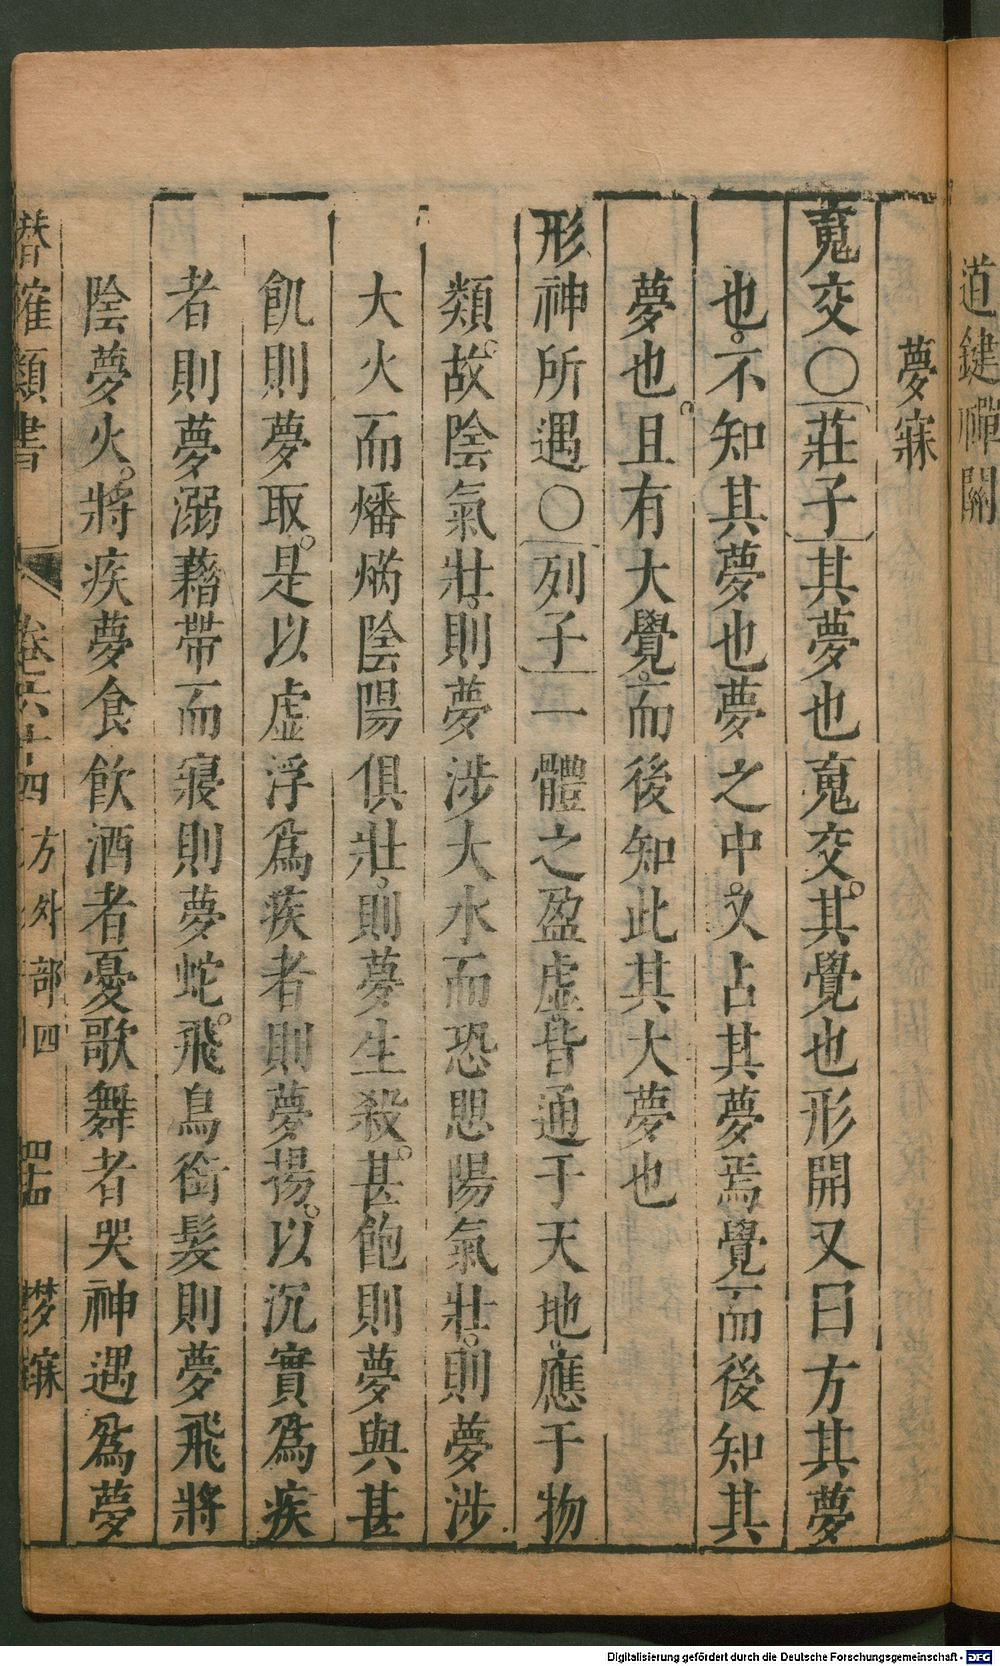 道鍵禪關
夢寐
䰟交○莊子其夢也䰟交其覺也形開又曰方其夢
也不知其夢也夢之中又占其夢焉覺而後知其
夢也且有大覺而後知此其大夢也
形神所遇○列子一體之盈虛皆通于天地應于物
類故陰氣壯則夢涉大水而恐思陽氣壯則夢涉
大火而燔焫陰陽俱壯則夢生殺甚飽則夢與甚
飢則夢取是以虛浮爲疾者則夢揚以沉實爲疾
者則夢溺藉帶而寢則夢蛇飛鳥銜髮則夢飛將
陰夢火將疾夢食飲酒者憂歌舞者哭神遇爲夢
潛確類書 卷六十四 方外部四 四十四 夢寐
Digitalisierung gefördert durch die Deutsche Forschungsgemeinschaft - DFG